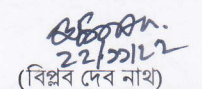 22/11/22
(বিপ্লব দেব নাথ)